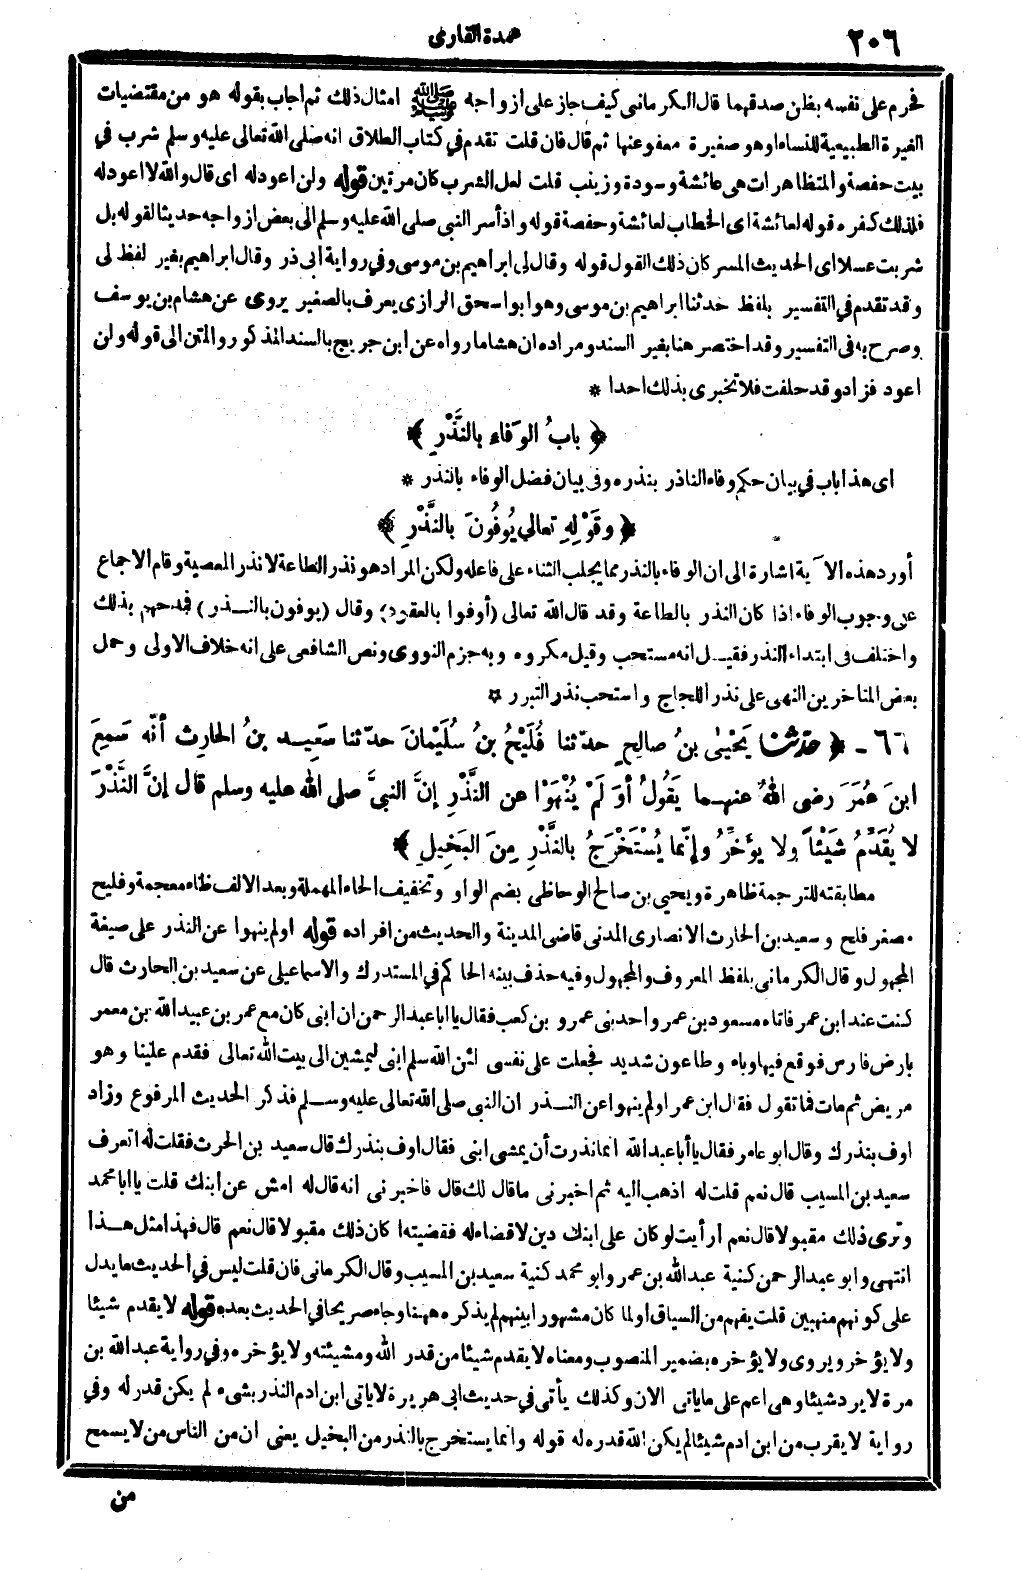 ٢٠٦
عمدة القارى
فحرم على نفسه بظن صدقهما قال الكرمانى كيف جاز على ازواجه ﷺ امثال ذلك ثم اجاب بقوله هو من مقتضيات
الغيرة الطبيعية للنساء او هو صغيرة معفو عنها ثم قال فان قلت تقدم في كتاب الطلاق انه صلى الله تعالى عليه وسلم شرب في
بيت حفصة والمتظاهرات هى عائشة وسودة وزينب قلت لعل الشرب كان مرتين قوله ولن اعود له اى قال والله لا اعود له
فلذلك كفره قوله لعائشة اى الخطاب لعائشة وحفصة قوله واذ أسر النبي صلى الله عليه وسلم الى بعض ازواجه حديثا لقوله بل
شربت عسلا اى الحديث المسر كان ذلك القول قوله وقال لى ابراهيم بن موسى وفي رواية ابى ذر وقال ابراهيم بغير لفظ لى
وقد تقدم في التفسير بلفظ حدثنا ابراهيم بن موسى وهو ابو اسحق الرازى يعرف بالصغير يروى عن هشام بن يوسف
وصرح به فى التفسير وقد اختصر هنا بغير السند ومراده ان هشاما رواه عن ابن جريج بالسند المذكور والمتن الى قوله ولن
اعود فزاد وقد حلفت فلا تخبرى بذلك احدا *
﴿ بابُ الوَفاءِ بالنَّذْرِ ﴾
اى هذا باب في بيان حكم وفاء الناذر بنذره وفى بيان فضل الوفاء بالنذر *
﴿ وقَوْلِهِ تعالي يُوفُونَ بالنَّذْرِ ﴾
أورد هذه الآية اشارة الى ان الوفاء بالنذر مما يجلب الثناء على فاعله ولكن المراد هو نذر الطاعة لا نذر المعصية وقام الاجماع
على وجوب الوفاء اذا كان النذر بالطاعة وقد قال الله تعالى (أوفوا بالعقود) وقال (يوفون بالنـذر) فمدحهم بذلك
واختلف فى ابتداء النذر فقيـل انه مستحب وقيل مكروه وبه جزم النووى ونص الشافعى على انه خلاف الاولى وحمل
بعض المتاخرين النهى على نذر اللجاج واستحب نذر التبرر *
٦٦ - ﴿ حدثنا يَحْيَى بنُ صالِحٍ حدّثنا فُلَيْحُ بنُ سُلَيْمانَ حدّثنا سَعِيـد بنُ الحارِث أنّه سَمِعَ
ابنَ عُمَرَ رضى اللهُ عنهـما يَقُولُ أوَ لَمْ يُنْهَوْا عن النَّذْرِ إنَّ النبيَّ صلى الله عليه وسلم قال إنَّ النَّذْرَ
لا يُقَدِّمُ شَيْئاً ولا يؤَخِّرُ وإنّما يُسْتَخْرَجُ بالنَّذْرِ مِنَ البَخِيلِ ﴾
مطابقته للترجمة ظاهرة ويحيى بن صالح الوحاظى بضم الواو وتخفيف الحاء المهملة وبعد الالف ظاء معجمة وفليح
مصغر فلح وسعيد بن الحارث الانصارى المدنى قاضى المدينة والحديث من افراده قوله اولم ينهوا عن النذر على صيغة
المجهول وقال الكرمانى بلفظ المعروف والمجهول وفيه حذف بينه الحاكم في المستدرك والاسماعيلى عن سعيد بن الحارث قال
كنت عند ابن عمر فاتاه مسعود بن عمرو احد بنى عمرو بن كعب فقال يا ابا عبد الرحمن ان ابنى كان مع عمر بن عبيد الله بن معمر
بارض فارس فوقع فيها وباء وطاعون شديد فجعلت على نفسى لئن الله سلم ابنى ليمشين الى بيت الله تعالى فقدم علينا وهو
مريض ثم مات فما تقول فقال ابن عمر اولم ينهوا عن النـذر ان النبي صلى الله تعالى عليه وسـلم فذكر الحديث المرفوع وزاد
اوف بنذرك وقال ابو عامر فقال يا أبا عبد الله انما نذرت أن يمشى ابنى فقال اوف بنذرك قال سعيد بن الحرث فقلت له اتعرف
سعيد بن المسيب قال نعم قلت له اذهب اليه ثم اخبرنى ما قال لك قال فاخبرنى انه قال له امش عن ابنك قلت يا ابا محمد
وترى ذلك مقبولا قال نعم ارأيت لو كان على ابنك دين لا قضاء له فقضيته ا كان ذلك مقبولا قال نعم قال فهذا مثل هـذا
انتهى وابو عبد الرحمن كنية عبد الله بن عمر وابو محمد كنية سعيد بن المسيب وقال الكرمانى فان قلت ليس في الحديث ما يدل
على كونهم منهيين قلت يفهم من السياق او لما كان مشهورا بينهم لم يذكره ههنا وجاء صريحا في الحديث بعده قوله لا يقدم شيئا
ولا يؤخر ويروى ولا يؤخره بضمير المنصوب ومعناه لا يقدم شيئا من قدر الله ومشيئته ولا يؤخره وفي رواية عبد الله بن
مرة لا يرد شيئا وهى اعم على ماياتى الان وكذلك يأتى في حديث ابى هريرة لاياتى ابن ادم النذر بشىء لم يكن قدر له وفي
رواية لا يقرب من ابن ادم شيئا لم يكن الله قدره له قوله وانما يستخرج بالنذر من البخيل يعنى ان من الناس من لا يسمح
من